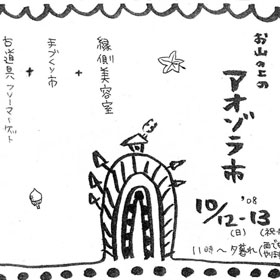 お山の上の
アオゾラ市
'08
10/12-13
(日)
11時〜夕暮れ
縁側美容室
+
手づくり市
+
古道具フリーマーケット